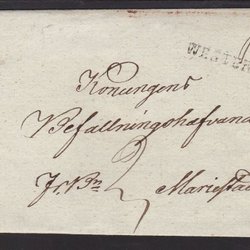 WESTER
Konungens
Befallningshafvand
Mariestad